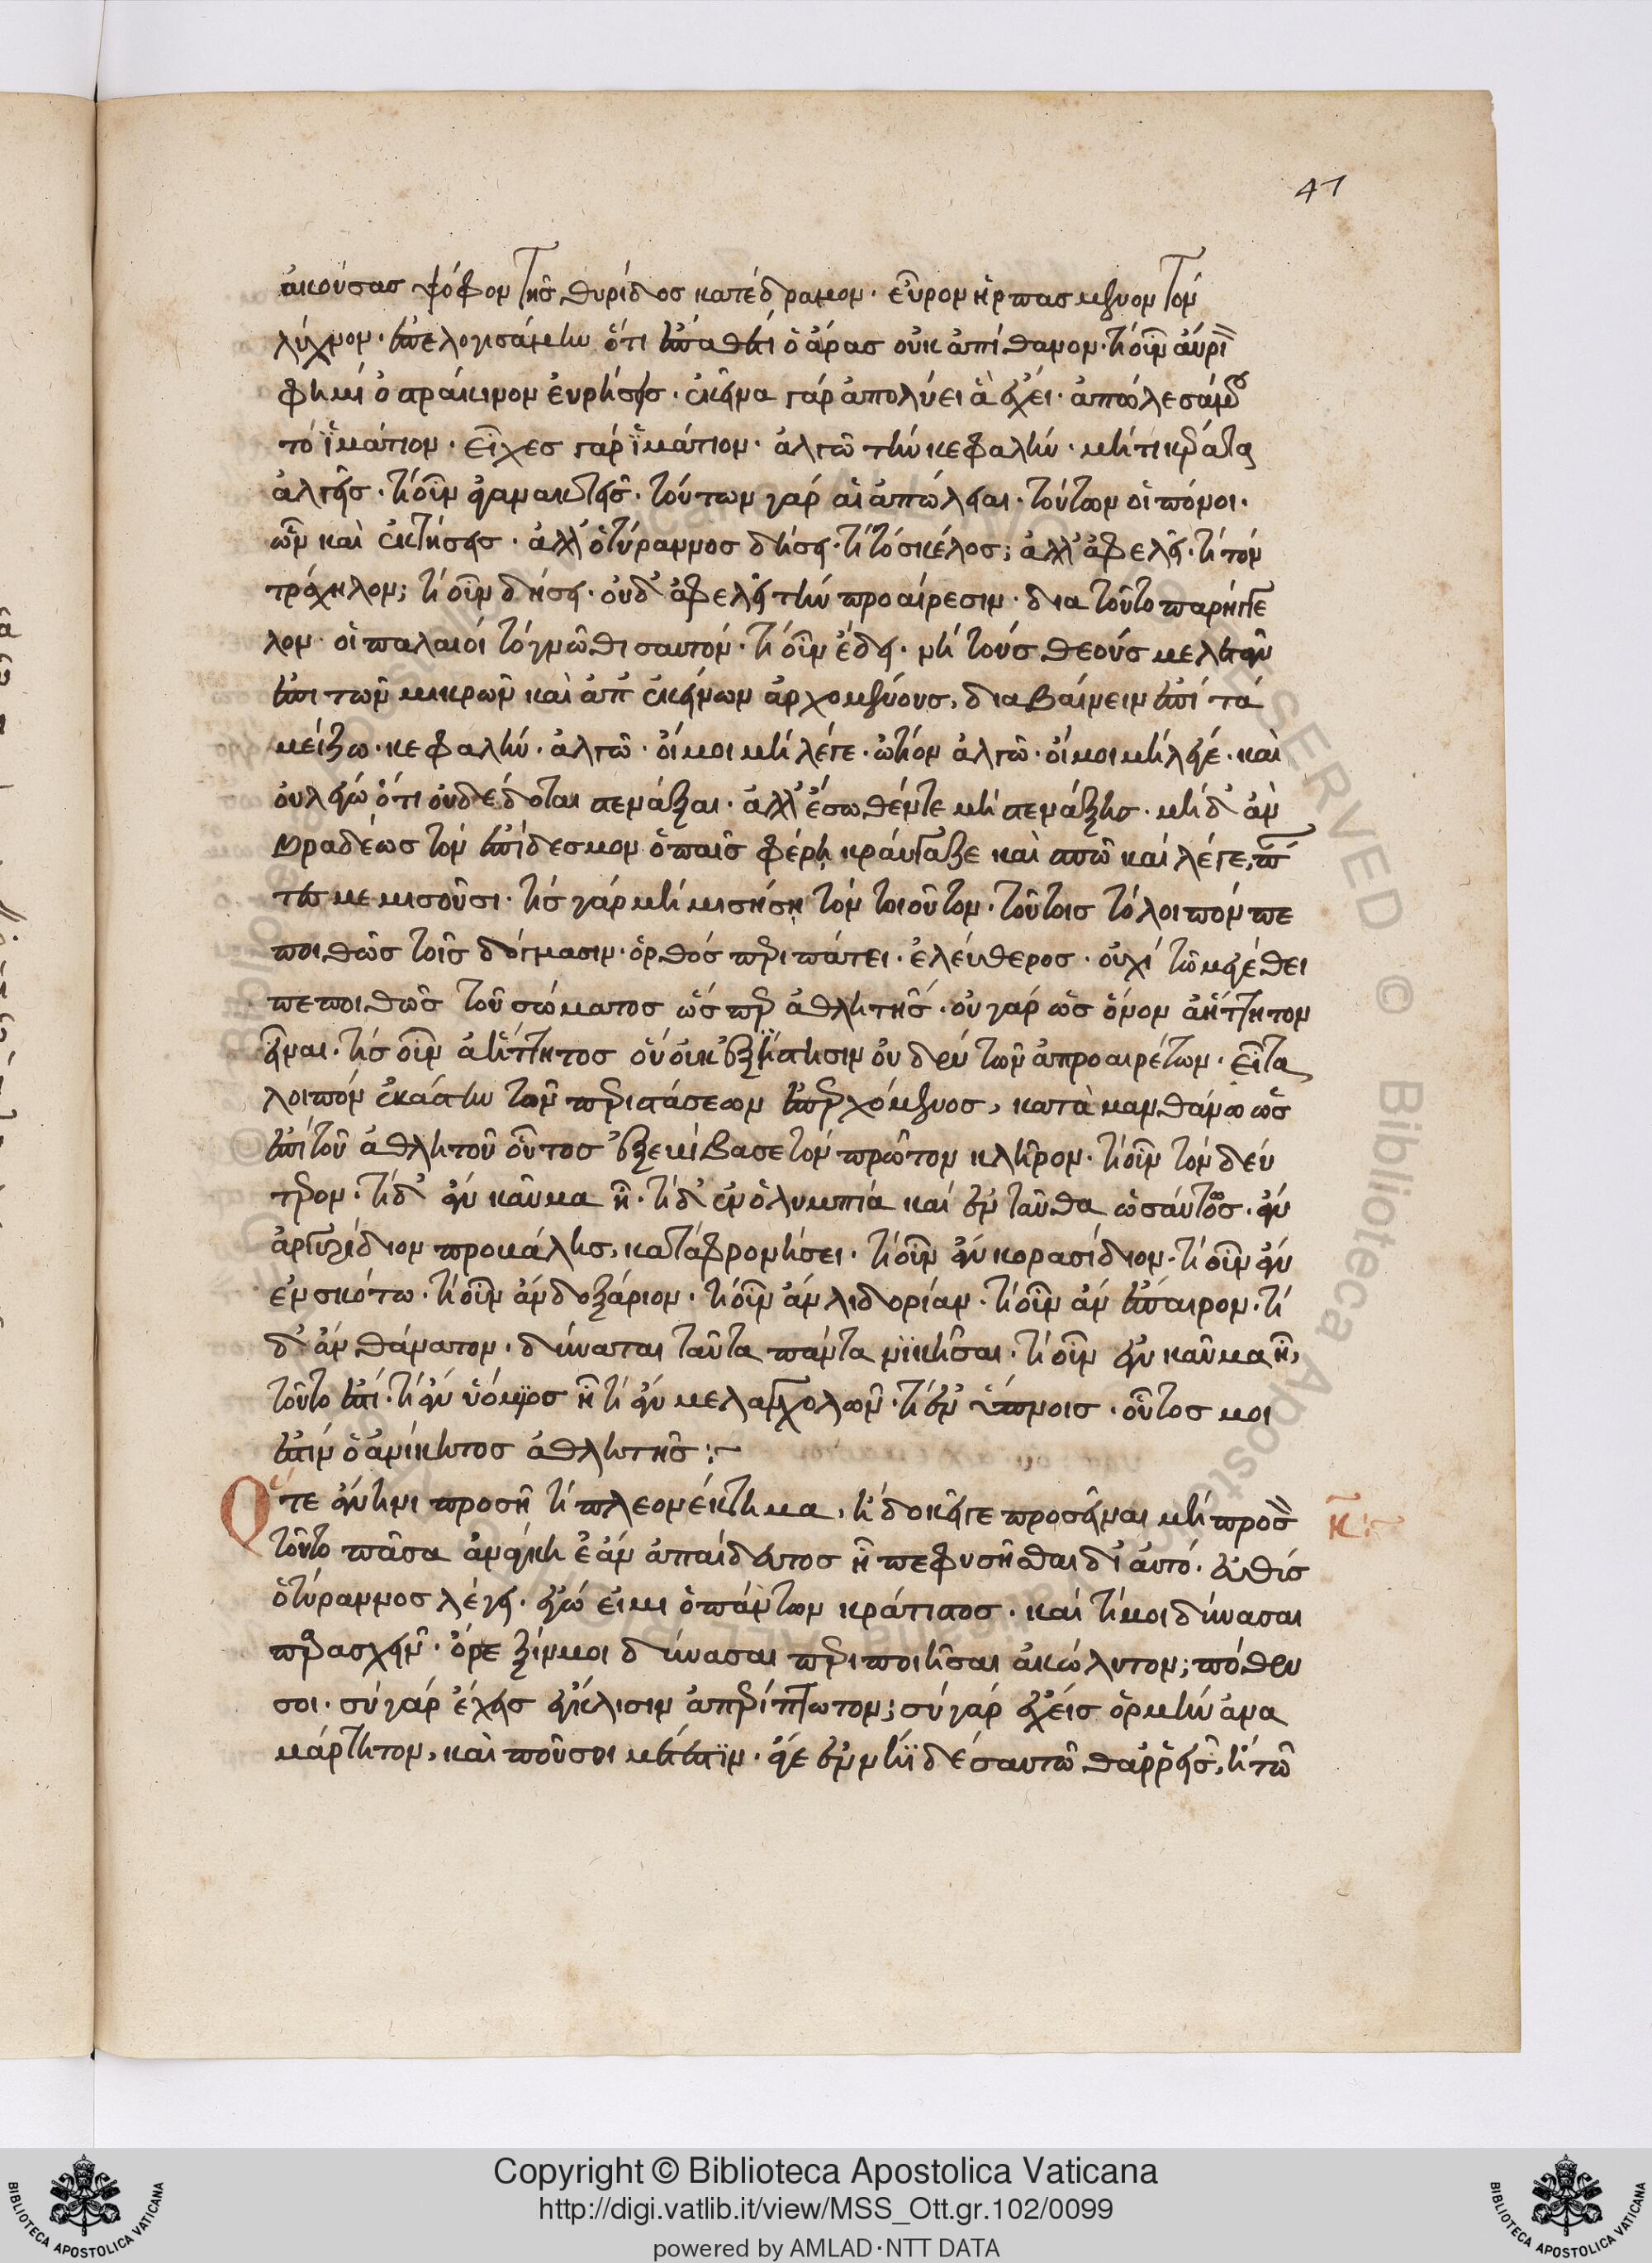 41
ἀκούσας ψόφον τῆς θυρίδος κατέδραμον· εὗρον ἡρπασμένον τὸν
λύχνον· ἐπελογισάμην ὅτι ἔπαθέν τι ὁ ἄρας οὐκ ἀπίθανον· τί οὖν αὔρι
φημὶ ὀστράκινον εὑρήσεις· ἐκεῖνα γάρ ἀπολύει ἃ ἔχει· ἀπώλεσά μου
τό ἱμάτιον· εἶχες γάρ ἱμάτιον· ἀλγῶ τήν κεφαλήν· μή τι κέρατα
ἀλγεῖς· τί οὖν ἀγανακτεῖς· τούτων γάρ αἱ ἀπώλειαι· τούτων οἱ πόνοι·
ὧν καὶ ἐκτήσεις· ἀλλ' ὁ τύραννος δήσει· τί τό σκέλος; ἀλλ' ἀφελεῖ· τί τόν
τράχηλον; τί οὖν δήσει· οὐδ' ἀφελεῖ τήν προαίρεσιν· δια τοῦτο παρήγγε
λον οἱ παλαιοί τό γνῶθι σαυτόν· τί οὖν ἔδει· μή τούς θεούς μελετᾶν
ἐπι τῶν μικρῶν καὶ ἀπ' ἐκείνων ἀρχομένους, διαβαίνειν ἐπί τά
μείζω· κεφαλήν· ἀλγῶ· οἴμοι μή λέγε· ὠτίον ἀλγῶ· οἴμοι μή λέγε· καὶ
οὐ λέγω ὅτι οὐ δέδοται στενάξαι· ἀλλ' ἔσωθέν τε μή στενάξῃς· μή δ' ἄν
βραδέως τόν ἐπίδεσμον ὁ παῖς φέρῃ κραύγαζε καὶ σπῶ καί λέγε, πάν
τες με μισοῦσι· τίς γάρ μή μισήσῃ τόν τοιοῦτον· τούτοις τό λοιπόν πε
ποιθώς τοῖς δόγμασιν· ὀρθός περιπάτει· ἐλεύθερος· οὐχί τῶ μεγέθει
πεποιθώς τοῦ σώματος ὥσπερ ἀθλητής· οὐ γάρ ὡς ὄνον ἀήττητον
εἶναι· τίς οὖν ἀήττητος ὃν οὐκ ἐξίστησιν οὐδέν τῶν ἀπροαιρέτων· εἶτα
λοιπόν ἑκάστην τῶν περιστάσεων ἐπερχόμενος, καταμανθάνω ὡς
ἐπί τοῦ ἀθλητοῦ οὗτος ἐξεβίβασε τόν πρῶτον κλῆρον· τί οὖν τόν δεύ
τερον· τί δ' ἄν καῦμα ἦ· τί δ' ἐν ὀλυμπία καί ἐνταῦθα ὡσαύτως· ἄν
ἀργυρίδιον προβάλῃς, καταφρονήσει· τί οὖν ἄν κορασίδιον· τί οὖν ἄν
ἐν σκότω· τί οὖν ἄν δοξάριον· τί οὖν ἄν λιδορίαν· τί οὖν ἄν ἔπαινον· τί
δ' ἄν θάνατον· δύναται ταῦτα πάντα νικῆσαι· τί οὖν ἄν καῦμα ἦ,
τοῦτο ἐστί· τί ἄν ὑόμενος ἦ τί ἄν μελαγχολῶν· τί ἐν ὕπνοις· οὗτος μοι
ἐστίν ὁ ἀνίκητος ἀθλητής :~
Ὅτε ἄν τινι προσῆ τί πλεονέκτημα, ἤ δοκῆ γε προσεῖναι μή προσ
κ :~
τοῦτο πᾶσα ἀνάγκη ἐάν ἀπαίδευτος ἦ πεφυσῆσθαι δι' αὐτό· εὐθύς
ὁ τύραννος λέγει· ἐγώ εἰμι ὁ πάντων κράτιστος· καί τί μοι δύνασαι
παρασχεῖν· ὄρεξίν μοι δύνασαι περιποιῆσαι ἀκώλυτον; πόθεν
σοι· σύ γάρ ἔχεις ἔκκλισιν ἀπερίπτωτον; σύ γάρ ἔχεις ὁρμήν ἀνα
μάρτητον, καὶ ποῦ σοι μέτεστιν· ἄγε ἐν νηῒ δέ σαυτῶ θαρρεῖς, ἤ τῶ
Copyright © Biblioteca Apostolica Vaticana
http://digi.vatlib.it/view/MSS_Ott.gr.102/0099
powered by AMLAD·NTT DATA
BIBLIOTECA APOSTOLICA VATICANA
BIBLIOTECA APOSTOLICA VATICANA